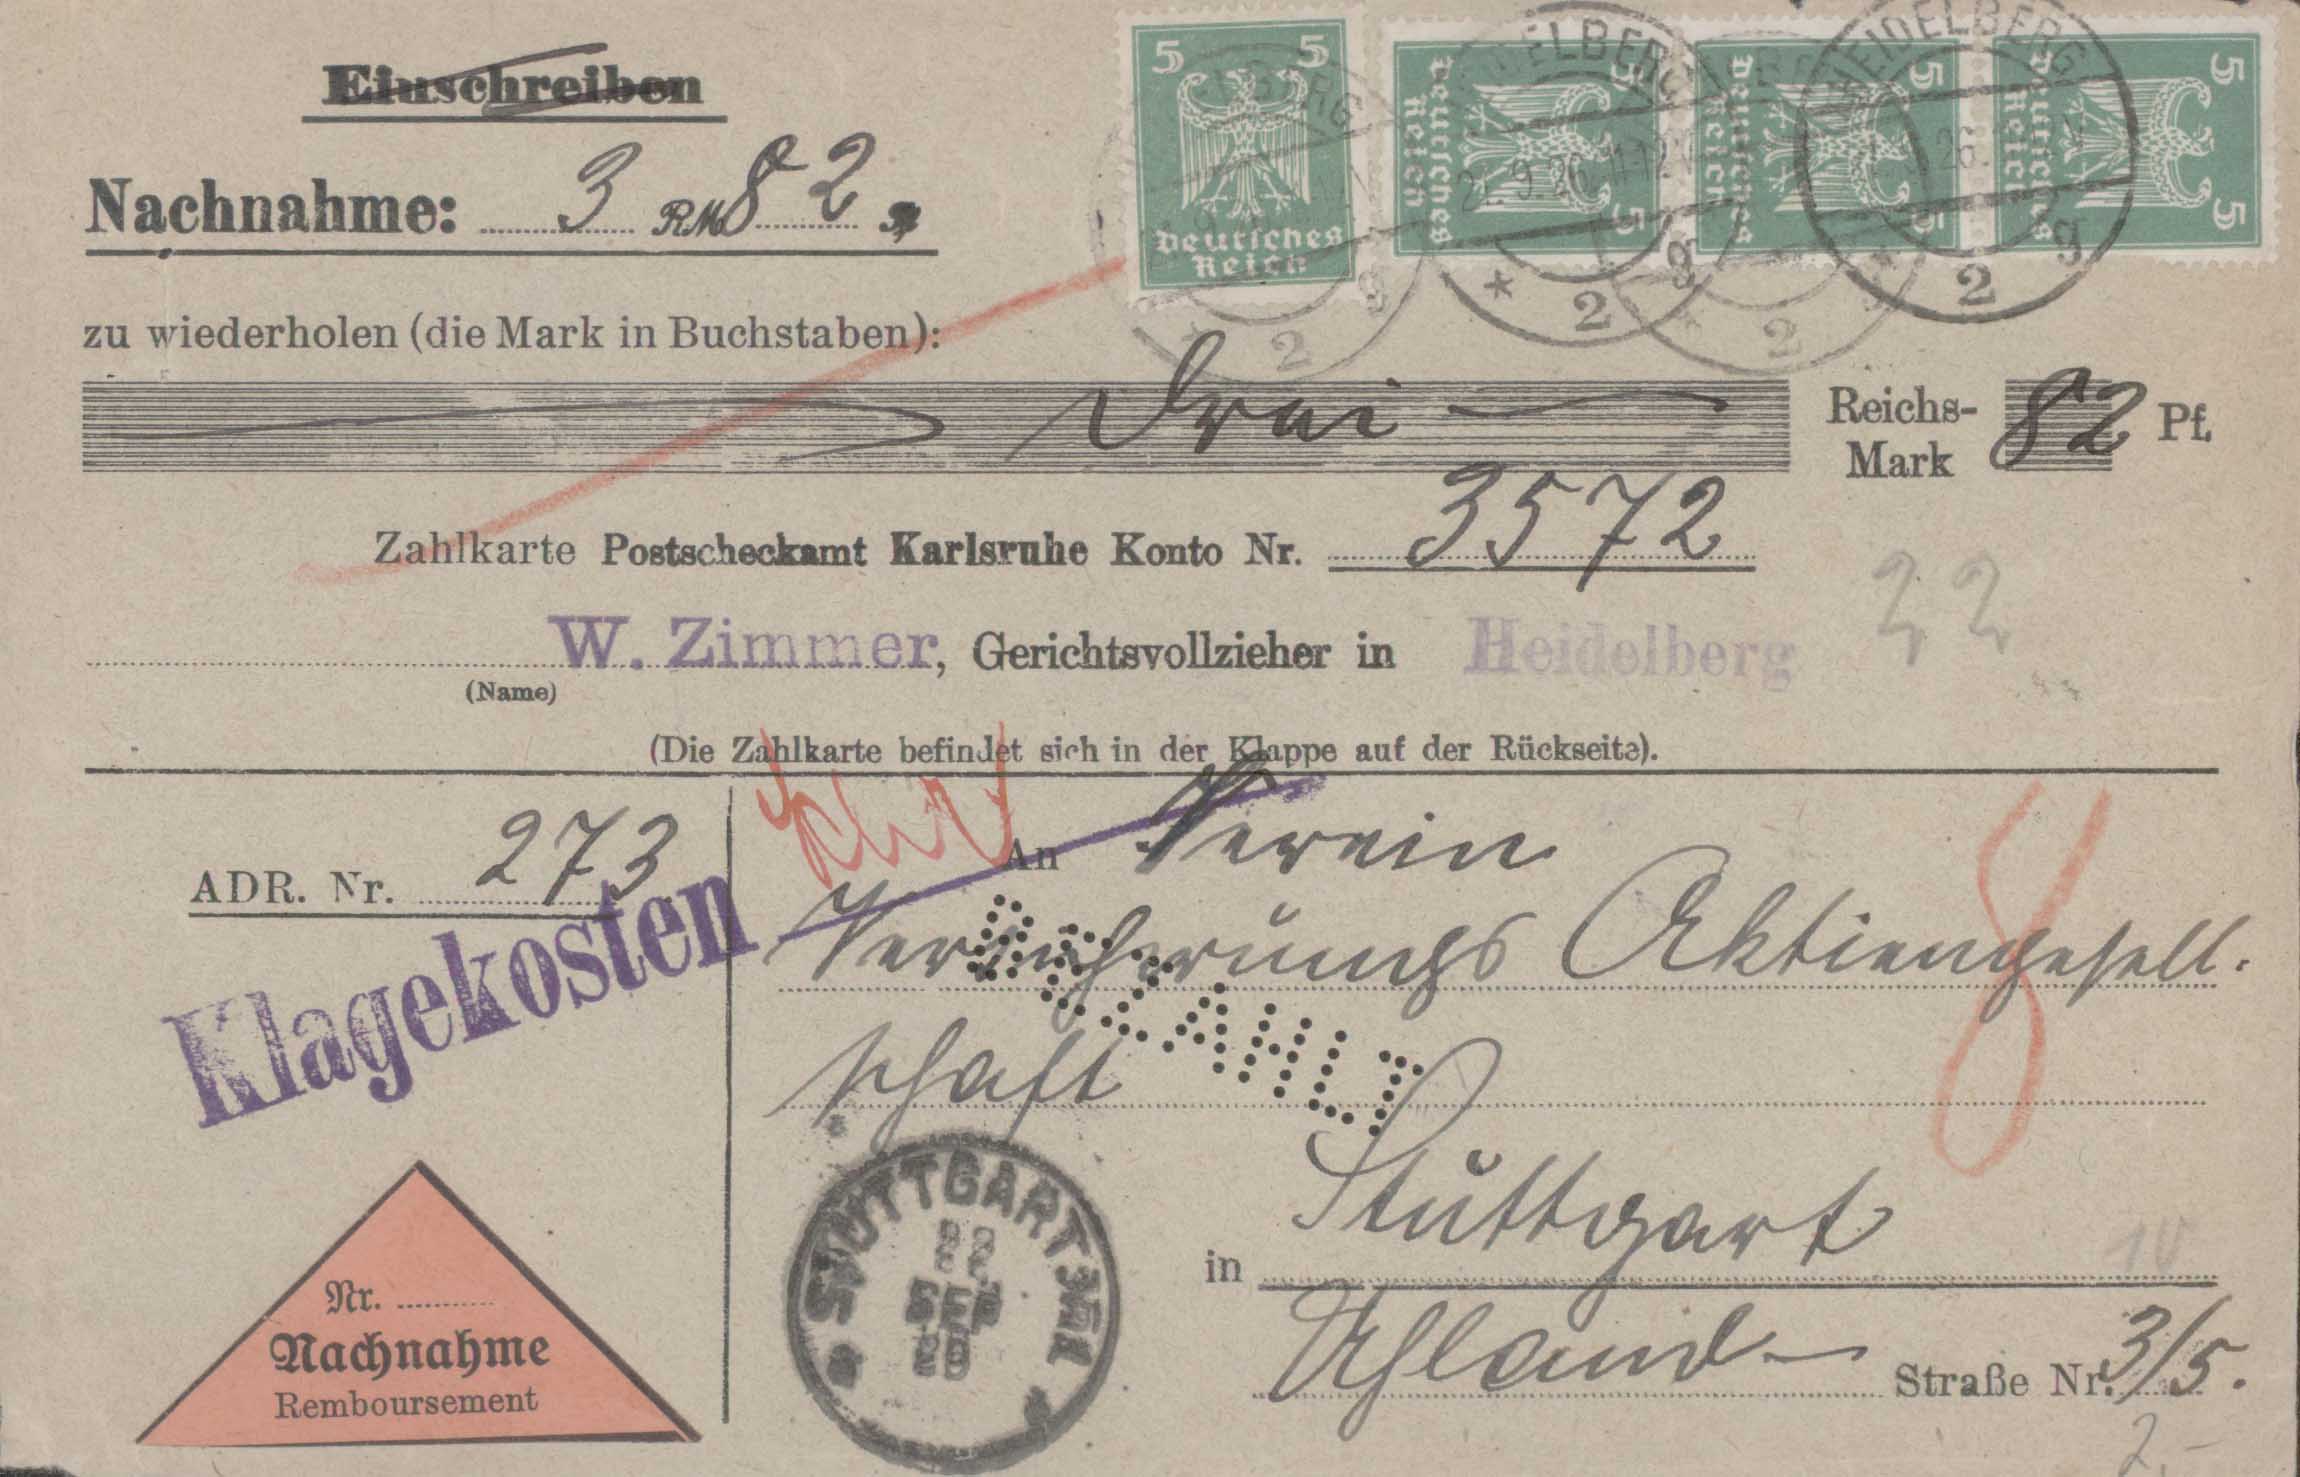 Einschreiben
Nachnahme: 3 RM 82
zu wiederholen (die Mark in Buchstaben):
Drei Reichs-Mark 82 Pf.
Zahlkarte Postscheckamt Karlsruhe Konto Nr. 3572
W. Zimmer, Gerichtsvollzieher in Heidelberg
22
(Name)
(Die Zahlkarte befindet sich in der Klappe auf der Rückseite).
ADR. Nr. 273
Klagekosten
An Verein
Versicherungs Aktiengesell-
schaft
BEZAHLT
in Stuttgart
Uhland- Straße Nr. 3/5.
Nr.
Nachnahme
Remboursement
STUTTGART
22
SEP
5 5
Deutsches
Reich
5 5
Deutsches
Reich
5 5
Deutsches
Reich
5 5
Deutsches
Reich
HEIDELBERG
21.9.26.11-12
* 2 g
HEIDELBERG
2 g